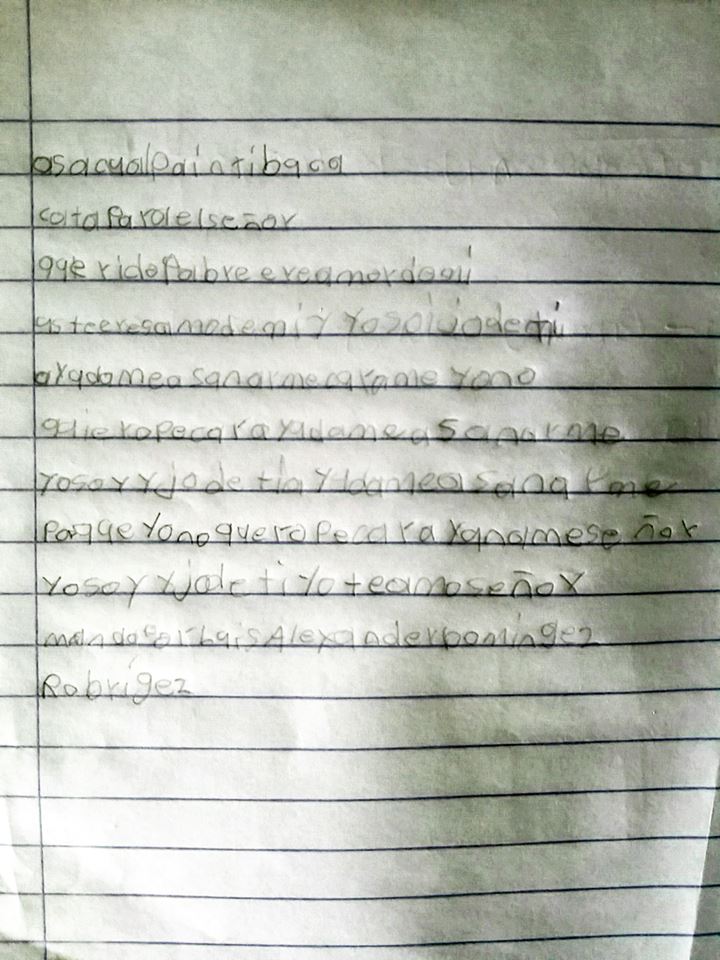 asacualpaintibaca
cataparaelseñor
qqeridopabreereamordaqui
usteeresamodemiyYosoiuiodemi
ayadameasanarmecarameYono
quieropecarayudameasanarme
yosoyyjodetiaYudameasanarme
porqueYonoqueropecaraYanameseñor
yosoyyjodetiYoteamoseñor
mandaporLuisAlexanderDomingez
Robrigez